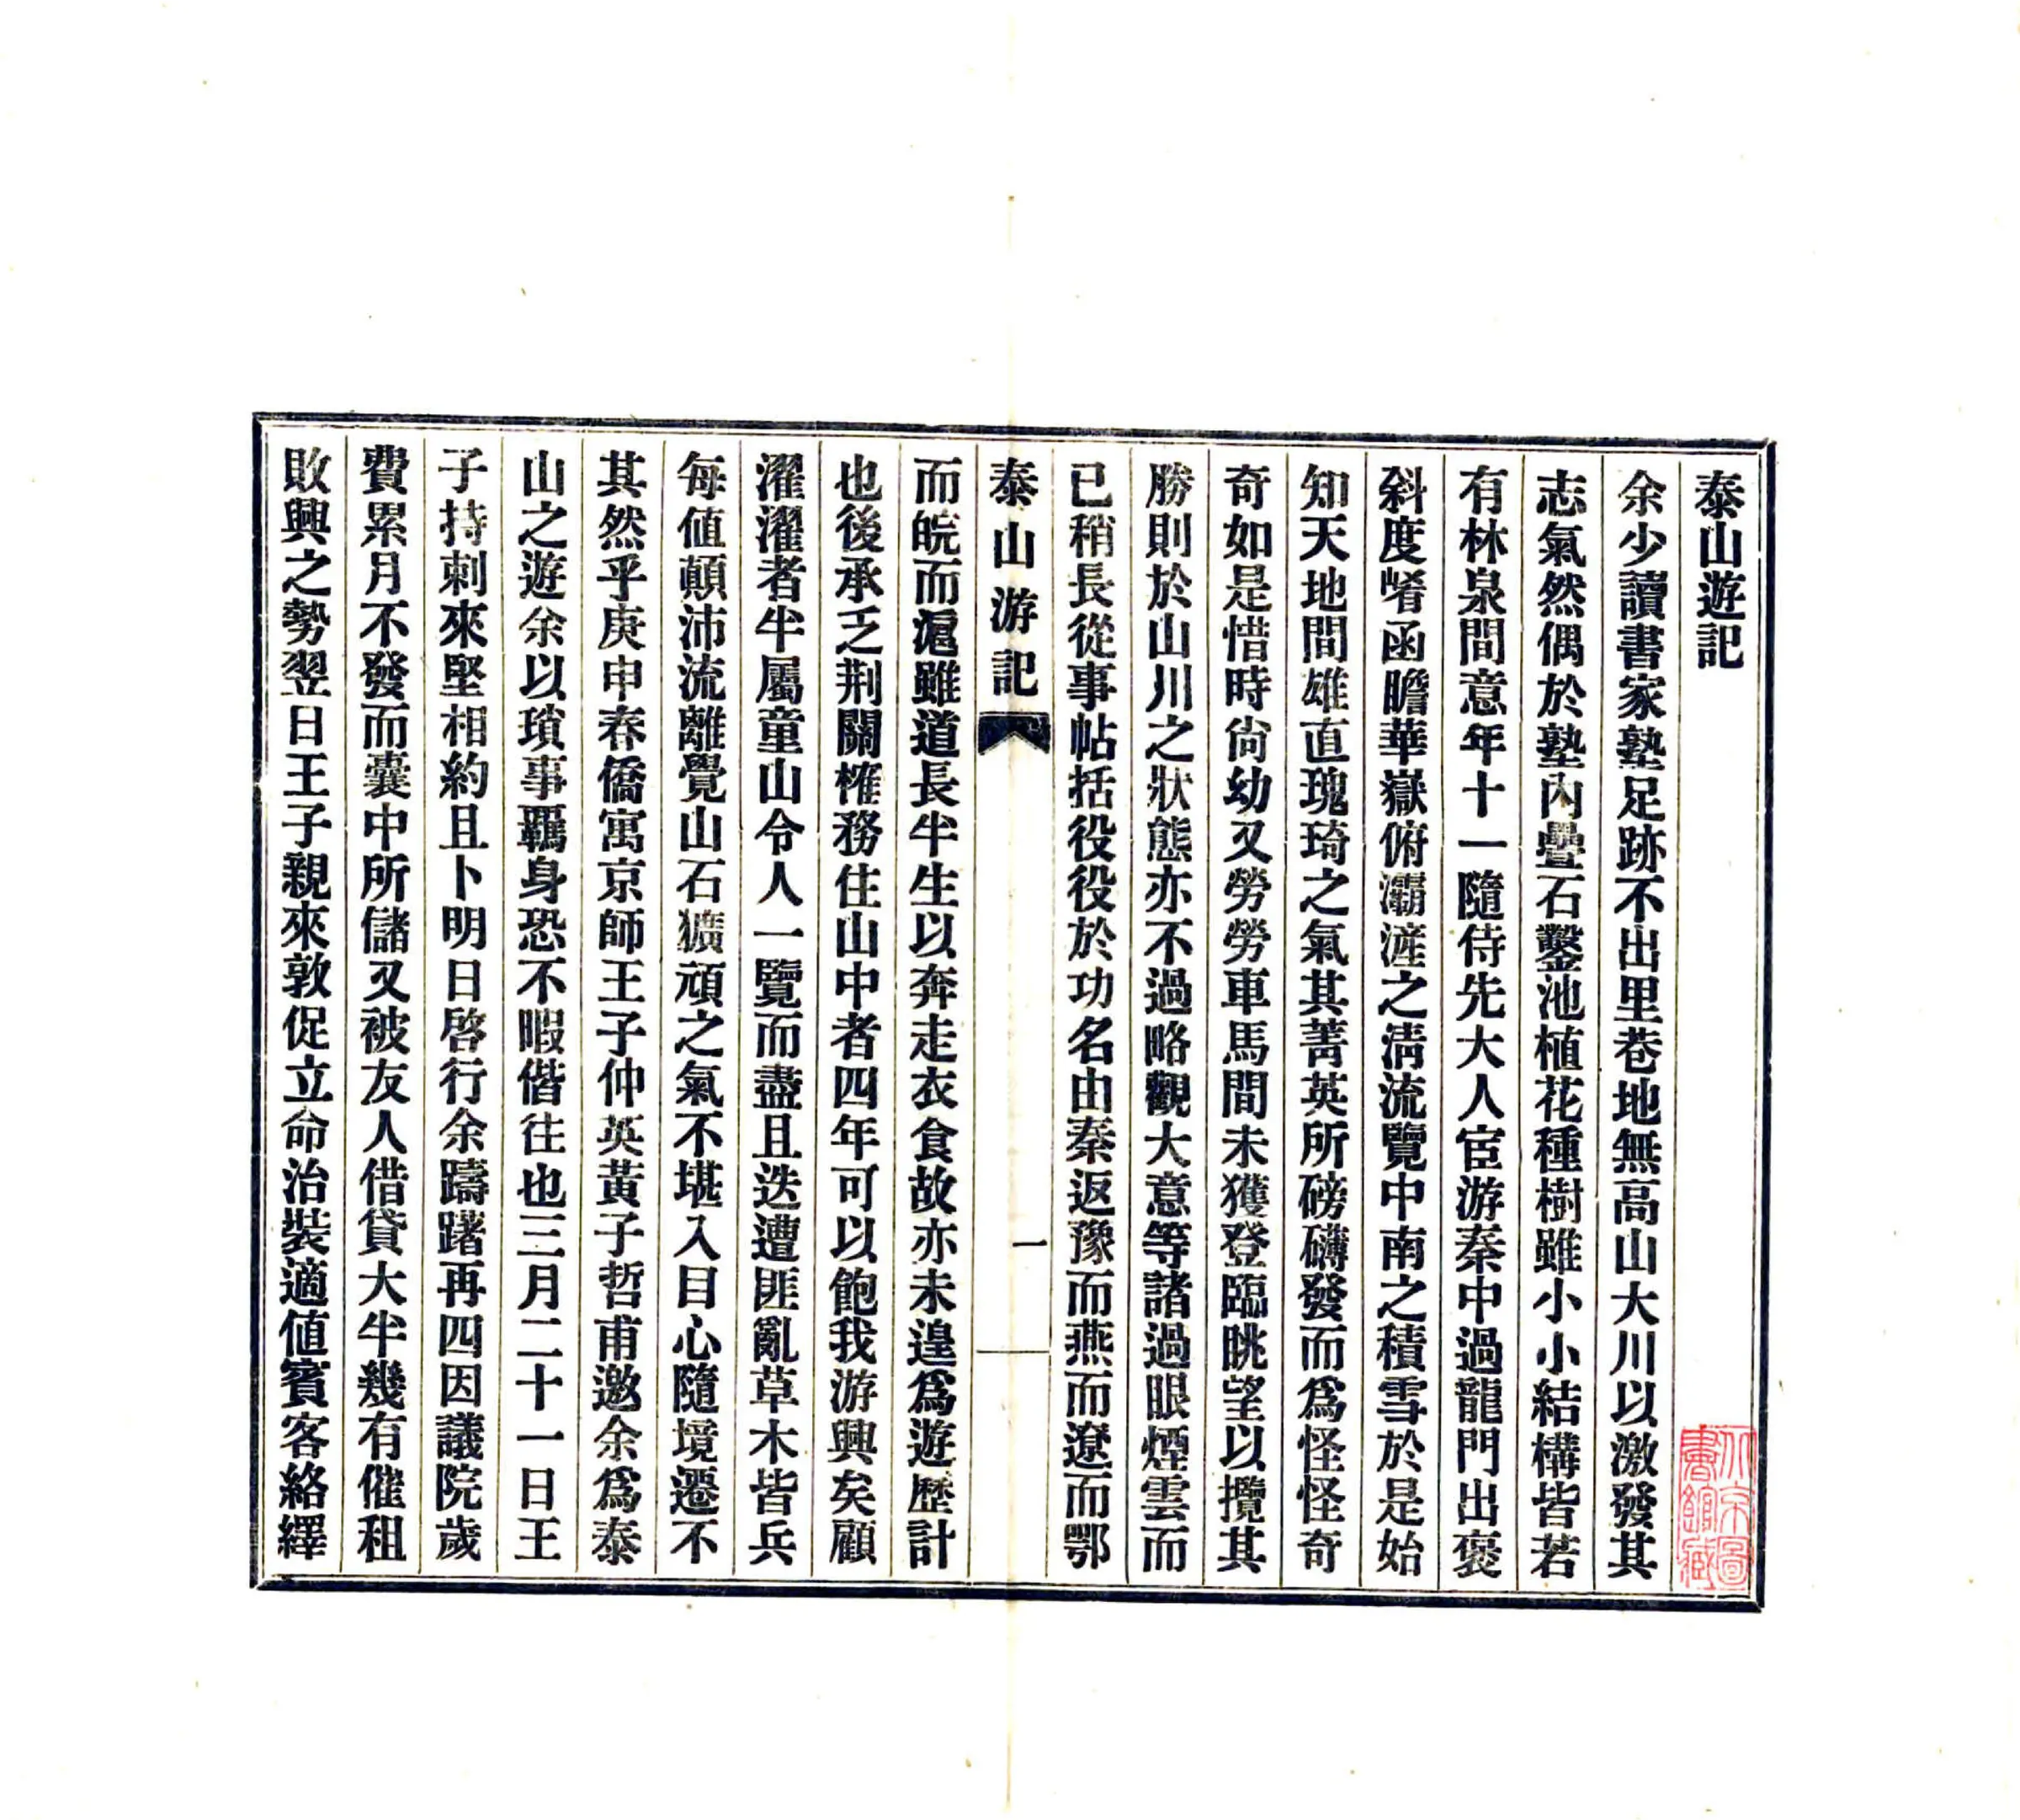 泰山遊記
余少讀書家塾足跡不出里巷地無高山大川以激發其
志氣然偶於塾內疊石鑿池植花種樹雖小小結構皆若
有林泉間意年十一隨侍先大人宦游秦中過龍門出褒
斜度崤函瞻華嶽俯灞滻之清流覽中南之積雪於是始
知天地間雄直瑰琦之氣其菁英所磅礴發而爲怪怪奇
奇如是惜時尙幼又勞勞車馬間未獲登臨眺望以攬其
勝則於山川之狀態亦不過略觀大意等諸過眼煙雲而
已稍長從事帖括役役於功名由秦返豫而燕而遼而鄂
泰山游記
一
而皖而滬雖道長半生以奔走衣食故亦未遑爲遊歷計
也後承乏荆關榷務住山中者四年可以飽我游興矣顧
濯濯者半屬童山令人一覽而盡且迭遭匪亂草木皆兵
每値顚沛流離覺山石獷頑之氣不堪入目心隨境遷不
其然乎庚申春僑寓京師王子仲英黃子哲甫邀余爲泰
山之遊余以瑣事羈身恐不暇偕往也三月二十一日王
子持刺來堅相約且卜明日啓行余躊躇再四因議院歲
費累月不發而囊中所儲又被友人借貸大半幾有催租
敗興之勢翌日王子親來敦促立命治裝適値賓客絡繹
北京圖
書館藏